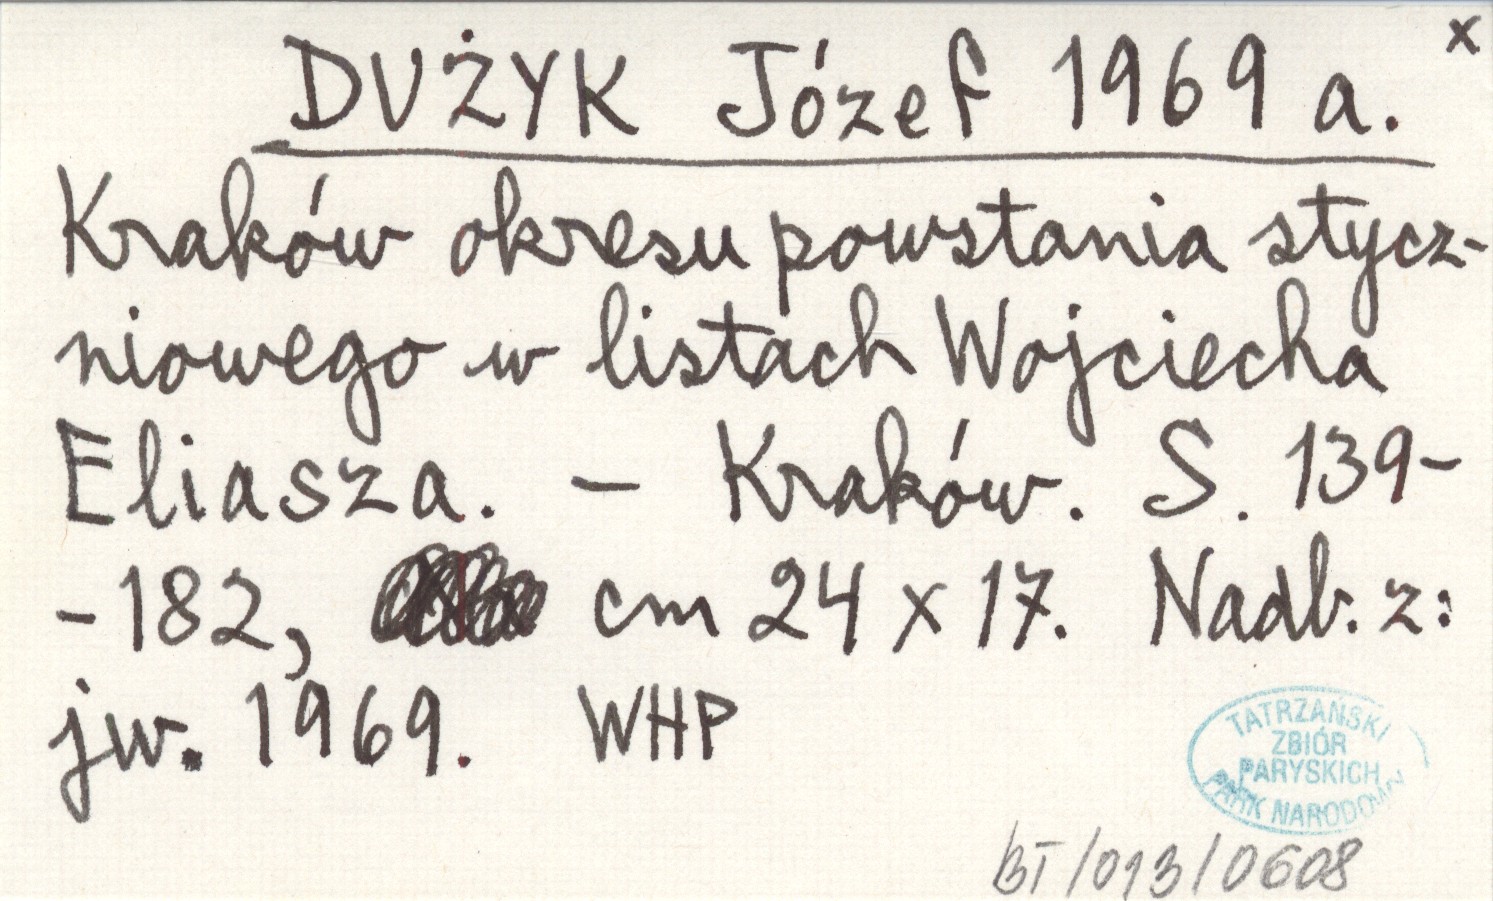 DUŻYK Józef 1969 a. x
Kraków okresu powstania stycz-
niowego w listach Wojciecha
Eliasza. - Kraków. S. 139-
-182, cm 24 x 17. Nadb. z:
jw. 1969. WHP
TATRZAŃSKI
ZBIÓR
PARYSKICH
PARK NARODOWY
BT/013/0608